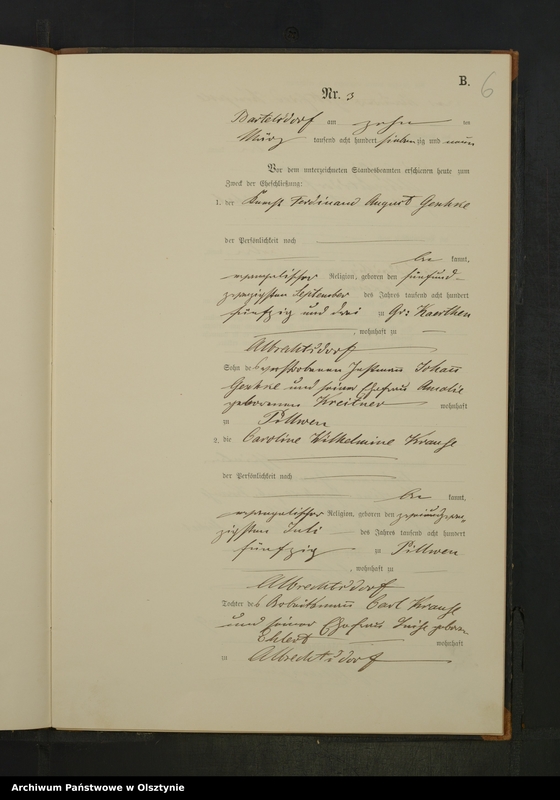 B.
6
Nr. 3
Bartelsdorf am zehn ten
März tausend acht hundert siebenzig und neun
Vor dem unterzeichneten Standesbeamten erschienen heute zum
Zweck der Eheschließung:
1. der Knecht Ferdinand August
der Persönlichkeit nach
be kannt,
evangelischer Religion, geboren den fünfund-
zwanzigsten September des Jahres tausend acht hundert
fünfzig und drei zu Gr:
, wohnhaft zu
Albrechtsdorf
Sohn des verstorbenen Instmann Johann
und seiner Ehefrau Amalie
geborenen wohnhaft
zu Pillwen
2. die Caroline Wilhelmine Krause
der Persönlichkeit nach
be kannt,
evangelischer Religion, geboren den zweiundzwan-
zigsten Juli des Jahres tausend acht hundert
fünfzig zu Pillwen
, wohnhaft zu
Albrechtsdorf
Tochter des Arbeitsmann Carl Krause
und seiner Ehefrau geboren
Ehlert wohnhaft
zu Albrechtsdorf
Archiwum Państwowe w Olsztynie